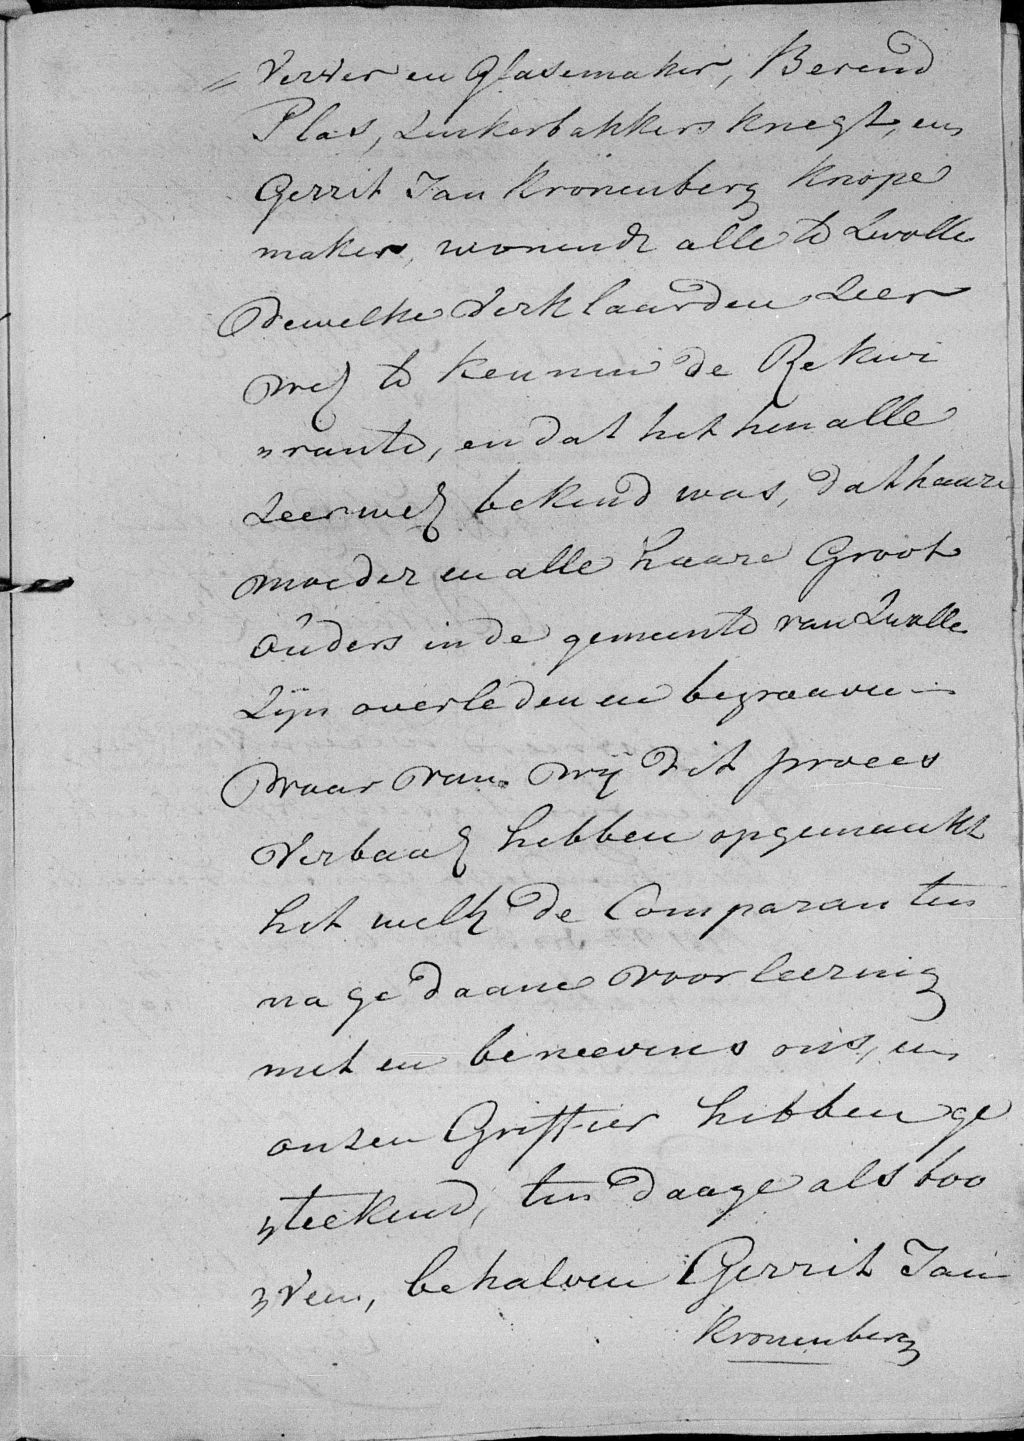 „ Verwer en Glasemaker, Berend
Plas, Zuikerbakkers knegt, en
Gerrit Jan Kronenberg Knope
maker, wonende alle te Zwolle
dewelke verklaarden zeer
wel te kennen de Rekwi
„rante, en dat het hen alle
zeer wel bekend was, dat haare
moeder en alle haare Groot
ouders in de gemeente van Zwolle
zijn overleden en begraaven —
waar van wij dit proces
verbaal hebben opgemaakt
het welk de Comparanten
na gedaane voorleezing
met en beneevens ons, en
onzen Griffier hebben ge
„teekend, ten daage als boo
„ven, behalven Gerrit Jan
Kronenberg